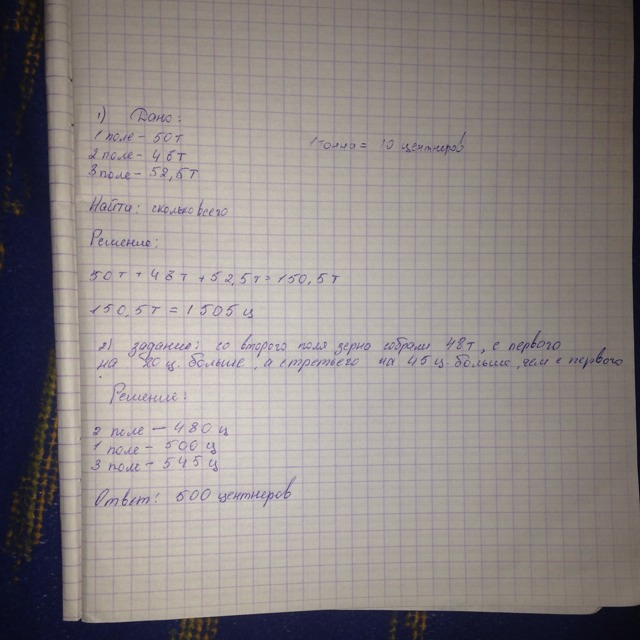 1) Дано:
1 поле - 50 т
1 тонна = 10 центнеров
2 поле - 48 т
3 поле - 52,5 т
Найти: сколько всего
Решение:
50 т + 48 т + 52,5 т = 150,5 т
150,5 т = 1505 ц
2) задание: со второго поля зерна собрали 48 т, с первого
на 20 ц. больше, а с третьего на 45 ц. больше, чем с первого
Решение:
2 поле - 480 ц
1 поле - 500 ц
3 поле - 545 ц
Ответ: 500 центнеров